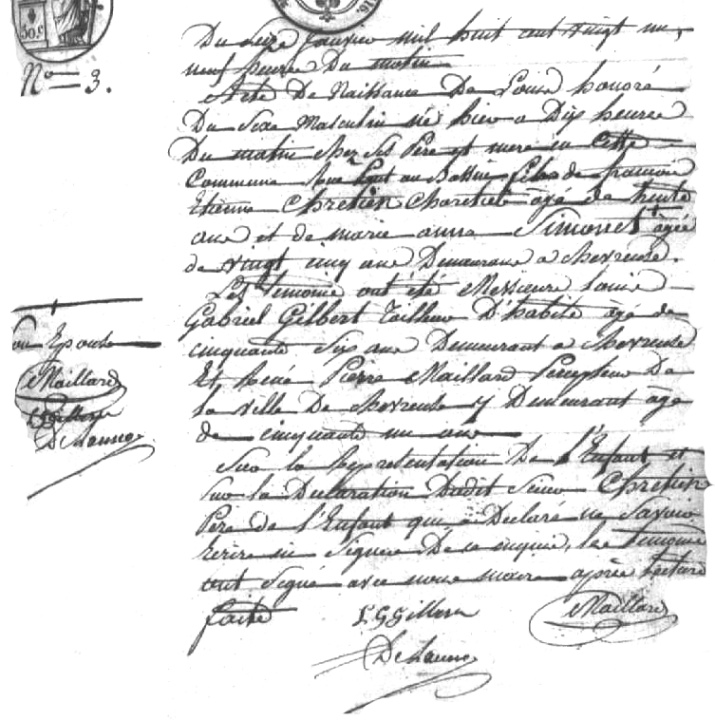 50 c
N° 3.
Du Seize Janvier mil huit cent vingt un,
neuf heures du matin
Acte De Naissance De Louis honoré
Du Sexe Masculin né hier a Dix heures
Du matin chez Ses Père et mere en Cette
Commune Rue fils de francois
Etienne Chretien Charetier âgé de trente
ans et de marie anne Simonet âgée
de vingt cinq ans Demeurans a chevreuse.
Les temoins ont été Messieurs Louis
Gabriel Gilbert Tailleur D'habits âgé de
cinquante Six ans Demeurant a chevreuse
Et René Pierre Maillard Percepteur De
la ville De chevreuse y Demeurant âgé
de cinquante un ans
Sur la Representation De l'Enfant et
Sur la Declaration Dudit Sieur Chretien
Père de l'Enfant qui a Declaré ne Savoir
Ecrire ni Signer De ce enquis, les temoins
ont Signé avec nous maire après Lecture
faite
LGGilbert
Maillard
son Epouse
Maillard
LGGilbert